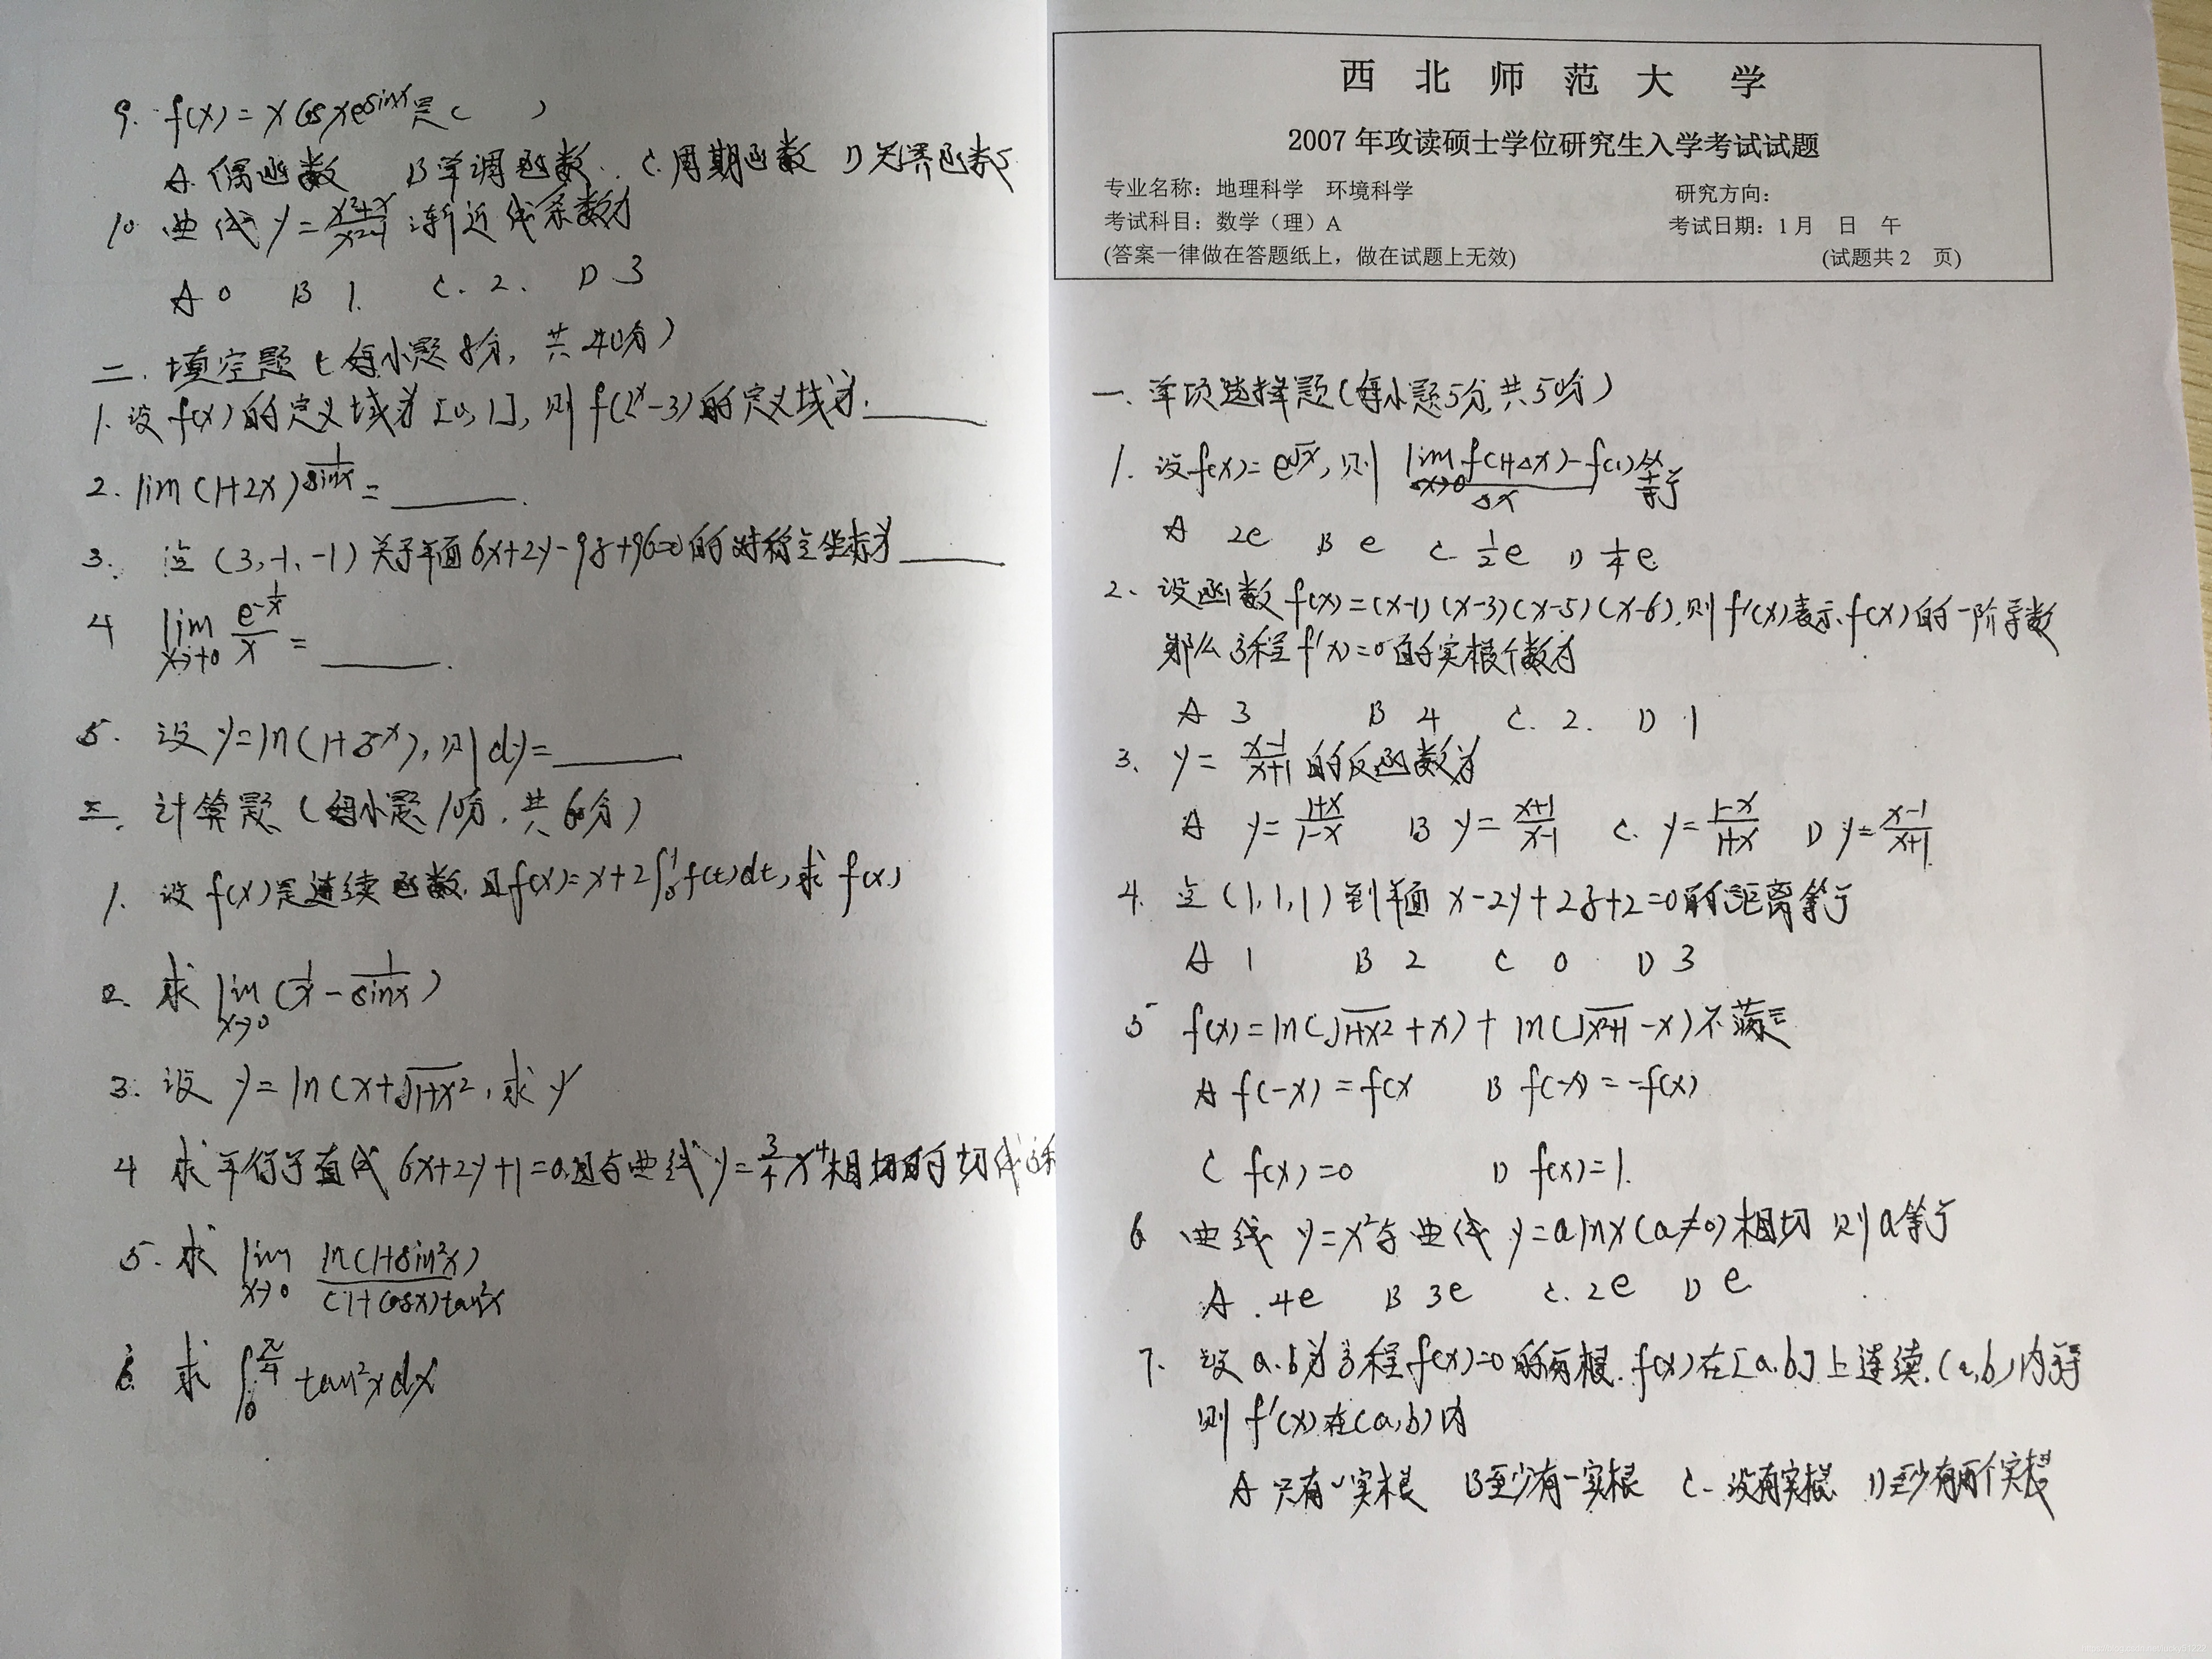 西北师范大学
2007年攻读硕士学位研究生入学考试试题
专业名称：地理科学 环境科学 研究方向：
考试科目：数学（理）A 考试日期：1月 日 午
(答案一律做在答题纸上，做在试题上无效) (试题共2 页)
一、单项选择题（每小题5分,共50分）
1. 设f(x)=e^√x, 则 lim_{Δx→0} (f(1+Δx)-f(1))/Δx 等于
A 2e B e C 1/2 e D 1/4 e
2、设函数 f(x)=(x-1)(x-3)(x-5)(x-6),则f'(x)表示f(x)的一阶导数
那么方程f'(x)=0的实根个数为
A 3 B 4 C. 2. D 1
3、y= (x-1)/(x+1) 的反函数为
A y= (1+x)/(1-x) B y= (x+1)/(x-1) C. y= (1-x)/(1+x) D y= (x-1)/(x+1)
4. 点(1,1,1)到平面 x-2y+2z+2=0的距离等于
A 1 B 2 C 0 D 3
5 f(x)=ln(√(1+x²)+x)+ln(√(x²+1)-x)不满足
A f(-x)=f(x B f(-x)=-f(x)
C f(x)=0 D f(x)=1.
6 曲线 y=x²与曲线 y=alnx(a≠0)相切 则a等于
A .4e B 3e C. 2e D e
7. 设a.b为方程f(x)=0的两根.f(x)在[a.b]上连续.(a,b)内可导
则f'(x)在(a,b)内
A 只有一实根 B至少有一实根 C- 没有实根 D至少有两个实根
9. f(x)=xcosxe^sinx是( )
A. 偶函数 B单调函数. C.周期函数 D无界函数
10 曲线 y=(x²+x)/(x²-1) 渐近线条数为
A 0 B 1. C. 2. D 3
二. 填空题（每小题8分, 共40分）
1.设f(x)的定义域为[0,1],则f(2^x-3)的定义域为.____
2. lim(1+2x)^(1/sinx)=____.
3. 点(3,-1,-1)关于平面6x+2y-9z+96=0的对称点坐标为____
4 lim_{x→+0} e^(-1/x)/x=____.
5. 设y=ln(1+5^x),则dy=____
三. 计算题（每小题10分.共60分）
1. 设f(x)是连续函数.且f(x)=x+2∫₀¹f(t)dt,求f(x)
2. 求 lim_{x→0}(1/x-1/sinx)
3. 设 y=ln(x+√(1+x²),求y'
4 求平行于直线 6x+2y+1=0.且与曲线y=3/4x⁴相切的切线方程
5. 求 lim_{x→0} ln(1+sin²x)/((1+cosx)tan²x)
6. 求 ∫₀^(π/4) tan²xdx